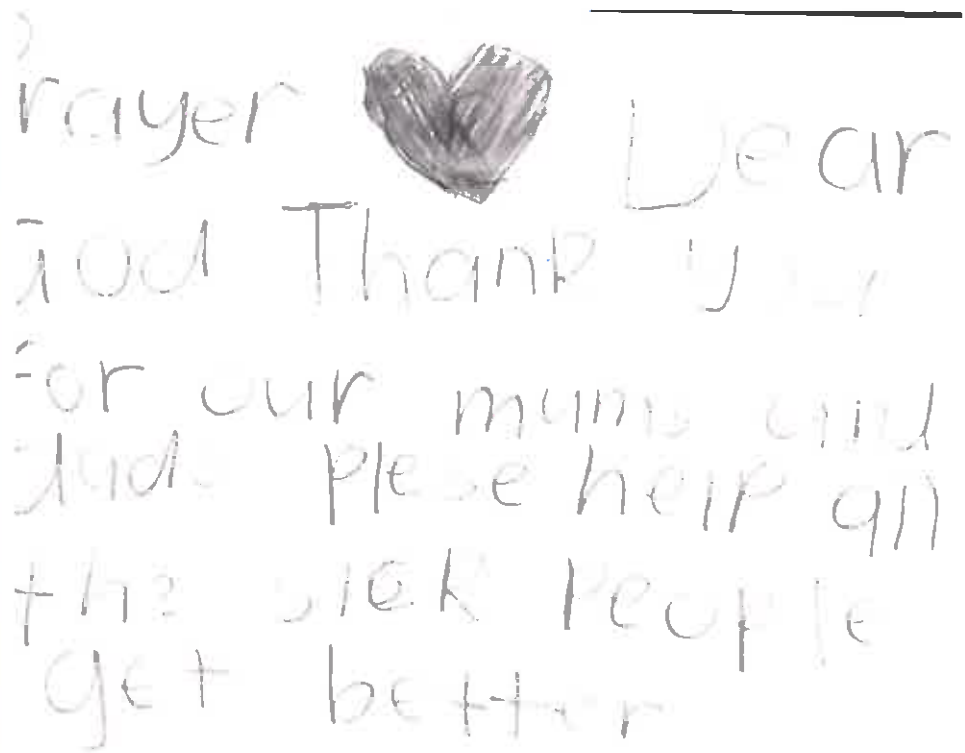 Prayer Dear
God Thank you
for our mums and
dads please help all
the sick people
get better